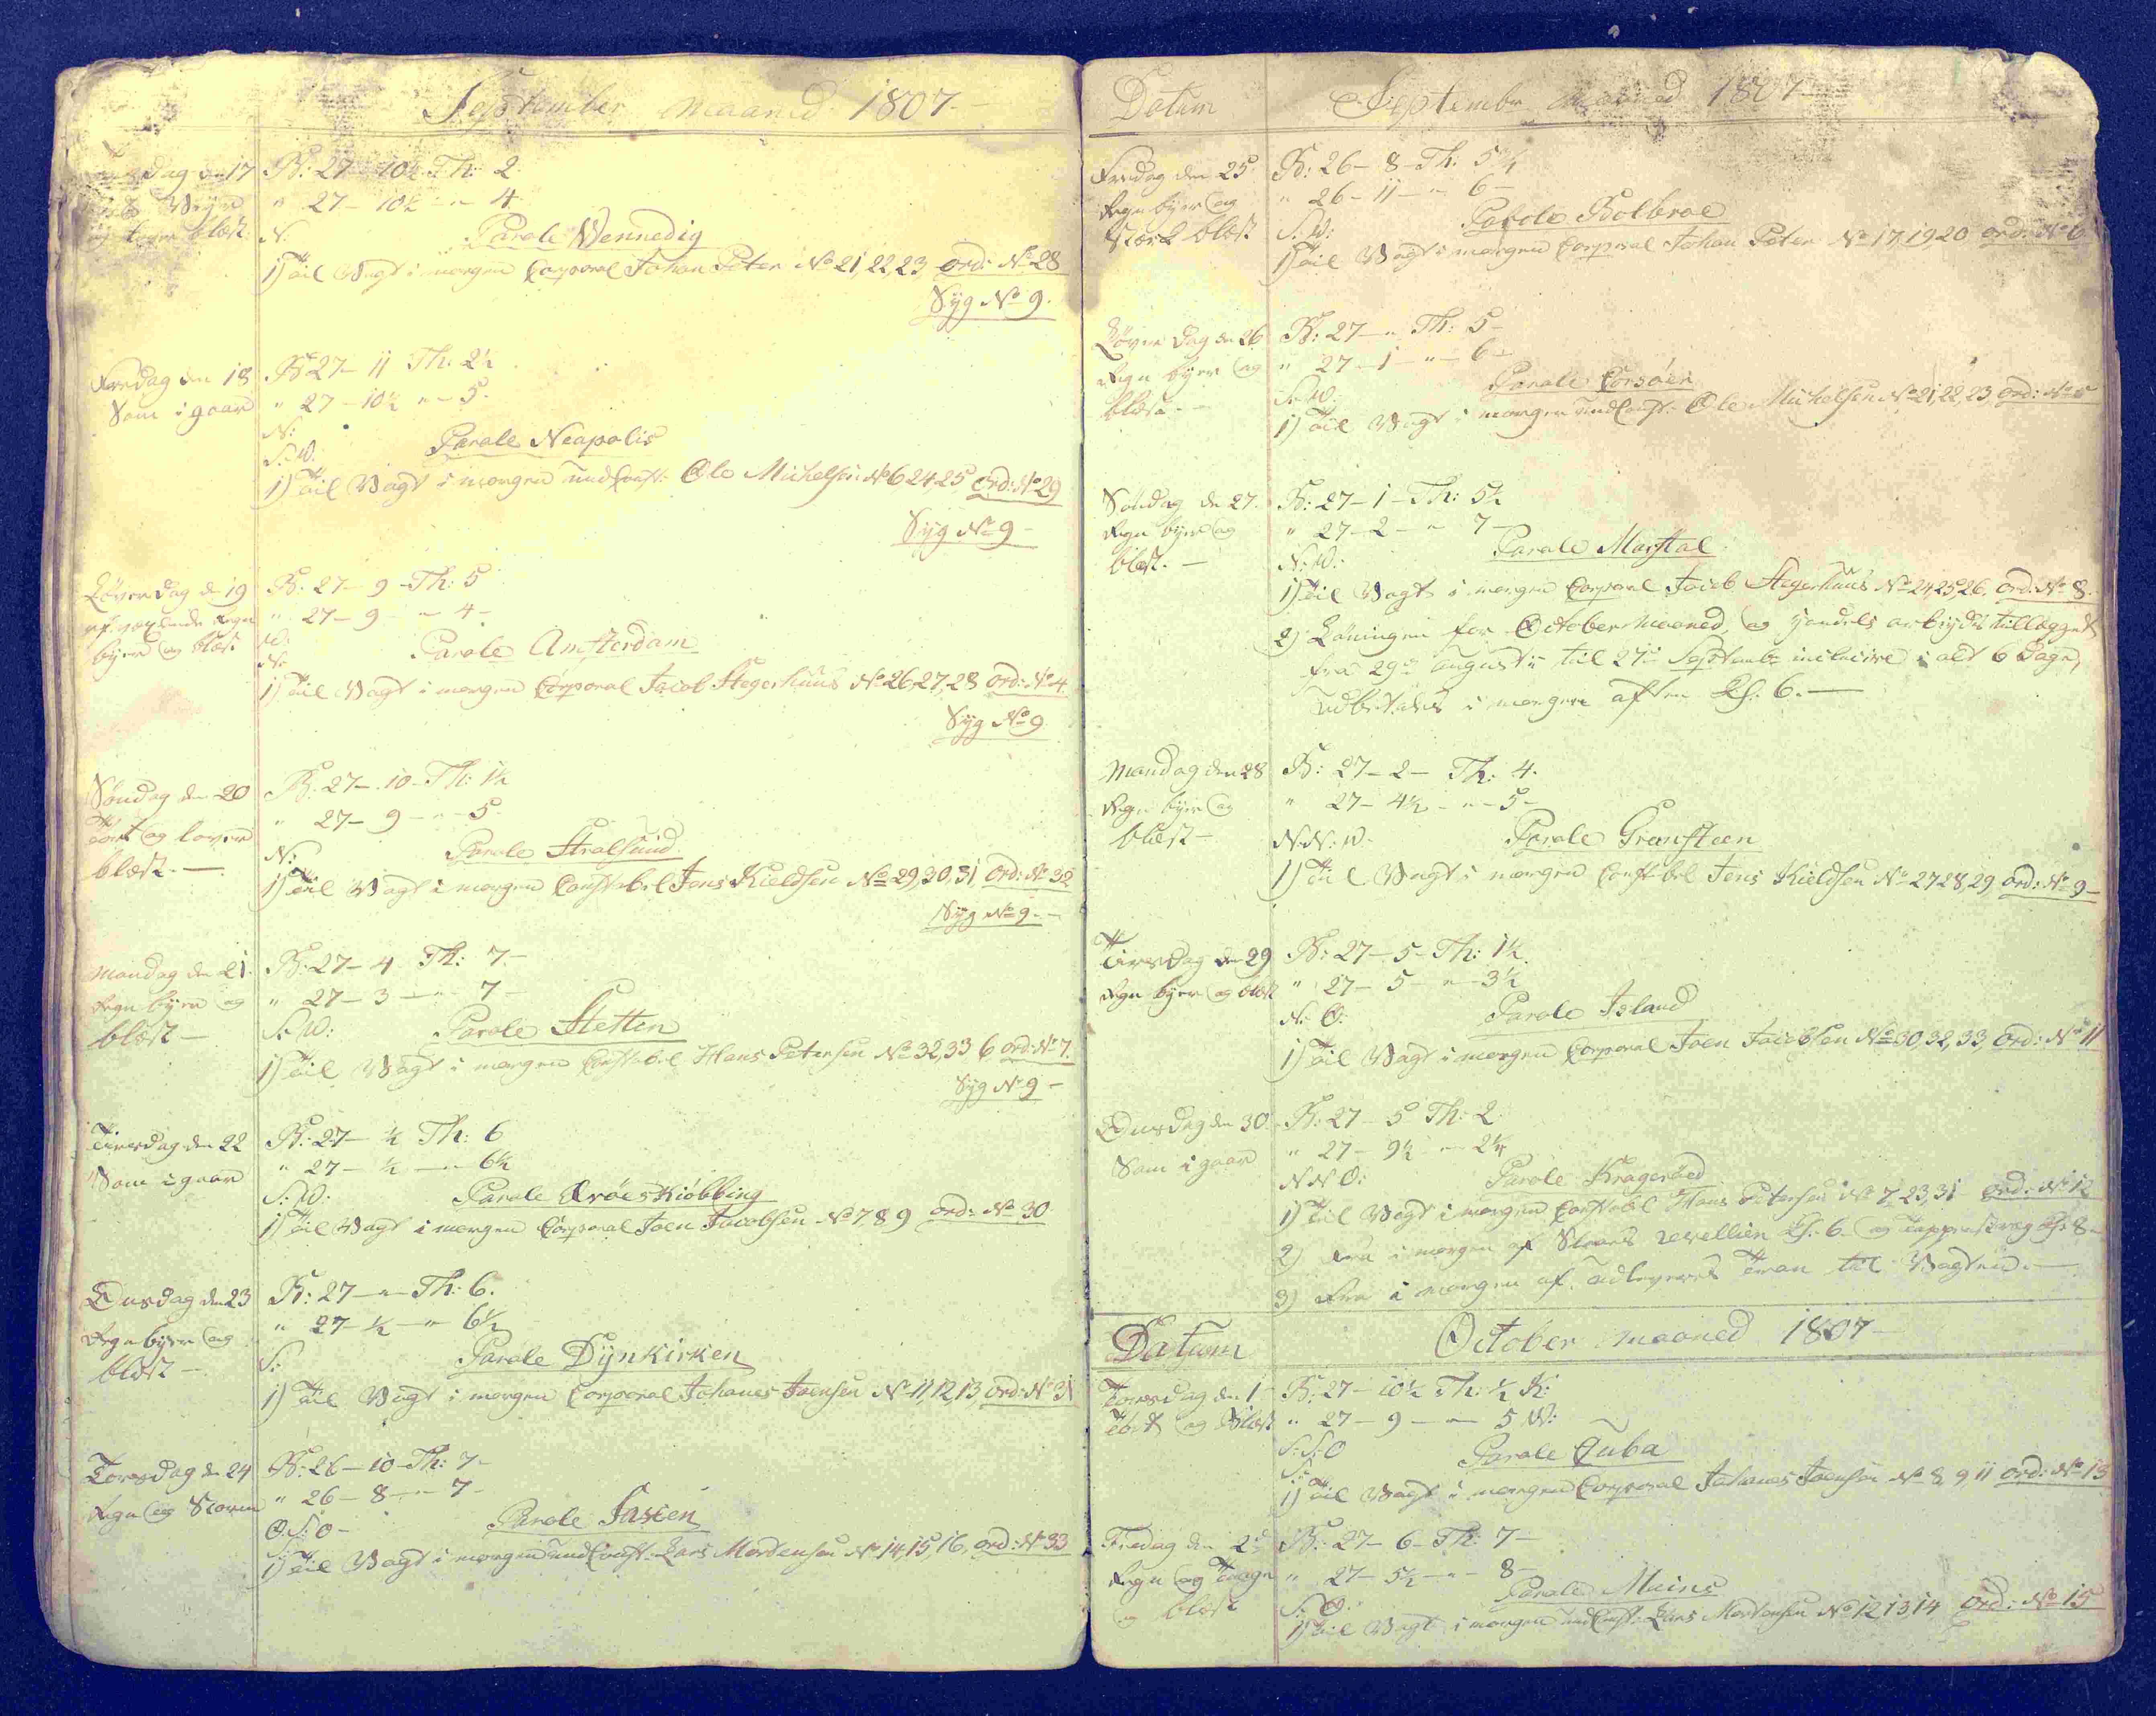 September Maaned 1807
dag den 17 B: 27 - 10½ Th: 2
Veyr " 27 - 10½ - " - 4
og blæst N: Parole Vennedig
1) Til Vagt i morgen Corporal Johan Peter No 21, 22, 23 ord: No 28
Syg No 9.
Fredag den 18 B: 27 - 11 Th: 2½
Som i gaar " 27 - 10½ " - 5
N:
S:W: Parole Neapolis
1) Til Vagt i morgen undConst: Ole Michelsen No 6 24, 25 ord: No 29
Syg No 9 -
Løverdag den 19 B: 27 - 9 - Th: 5
Regn " 27 - 9 - " 4 -
byer og blæst W:
N: Parole Amsterdam
1) Til Vagt i morgen Corporal Jacob Stegerhuus No 26, 27, 28 ord: No 4
Syg No 9
Søndag den 20 B: 27 - 10 - Th: 1½
Tørt og laver " 27 - 9 - " - 5
blæst. - N: Parole Stralsund
1) Til Vagt i morgen Constabel Jens Kieldsen No 29, 30, 31, ord: No 32
Syg No 9. -
Mandag den 21. B: 27 - 4 Th: 7. -
Regn byer og " 27 - 3 - " 7 -
blæst - S:W: Parole Stettin
1) Til Vagt i morgen Constabel Hans Petersen No 32, 33 6 ord: No 7.
Syg No 9 -
Tirsdag den 22 B: 27 - ½ Th: 6
Som i gaar " 27 - ½ - " 6½
S:W: Parole Ærøes Kiøbbing
1) Til Vagt i morgen Corporal Joen Jacobsen No 7 8 9 ord: No 30
Onsdag den 23 B: 27 - " - Th: 6.
Regn byer og " 27 - ½ - " 6½
blæst - S: Parole Dynkirken
1) Til Vagt i morgen Corporal Johanes Joensen No 11, 12, 13, ord: No 31
Torsdag den 24 B: 26 - 10 - Th: 7 -
Regn og Storm " 26 - 8 - " - 7 -
O:S:O - Parole
1) Til Vagt i morgen undConst: Lars Mortensen No 14, 15, 16, ord: No 33
Datum September Maaned 1807
Fredag den 25 B: 26 - 8 - Th: 5¼
Regn byer og " 26 - 11 - " 6 -
stærk blæst S:W: Parole Bolbroe
1) Til Vagt i morgen Corporal Johan Peter No 17, 19 20 ord: No 6
Løverdag den 26 B: 27 - " - Th: 5 -
Regn byer og " 27 - 1 - " - 6 -
blæst. - S:W: Parole Corsøer
1) Til Vagt i morgen undConst: Ole Michelsen No 21, 22, 23 ord: No
Søndag den 27. B: 27 - 1 - Th: 5½
Regn byer og " 27 - 2 - " 7 -
blæst. - N:W: Parole Marstal
1) Til Vagt i morgen Corporal Jacob Stegerhuus No 24, 25 26. ord: No 8.
2) Løningen for October Maaned, og arbeyds tillægget
fra 29de August til 27de September inclusive i alt 6 Dage,
udbetales i morgen aften Kl. 6. -
Mandag den 28 B: 27 - 2 - Th: 4.
Regn byer og " 27 - 4½ - " - 5 -
blæst - N:N:W. Parole Gransteen
1) Til Vagt i morgen Constabel Jens Kieldsen No 27 28, 29 ord: No 9 -
Tirsdag den 29 B: 27 - 5 - Th: 1½.
Regn byer og blæst " 27 - 5 - " - 3½
N:O: Parole Island
1) Til Vagt i morgen Corporal Joen Jacobsen No 30, 32, 33, ord: No 11
Onsdag den 30 B: 27 - 5 Th: 2.
Som i gaar " 27 - 9½ - " 2½
N N O: Parole Kragerøed
1) Til Vagt i morgen Constabel Hans Petersen No 7, 23, 31 ord: No 12
2) Fra i morgen af Slaaes revellien Kl. 6. og Tappenstreg Kl. 8 -
3) Fra i morgen af udleveres Tran til Vagten. -
Datum October Maaned 1807 -
Torsdag den 1 - B: 27 - 10½ Th: ½ K:
Tørt og Blæst " 27 - 9 - " - 5 W:
S:S:O Parole Cuba
1) Til Vagt i morgen Corporal Johanes Joensen No 8, 9, 11 ord: No 13
Fredag den 2de B: 27 - 6 - Th: 7 -
Regn og Taage " 27 - 5½ - " - 8 -
og blæst S:O: Parole Mains
1) Til Vagt i morgen undConst: Lars Mortensen No 12 13 14 ord: No 15